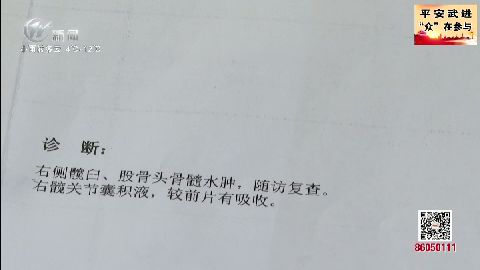 新闻
平安武进
“众”在参与
诊 断：
右侧髋臼、股骨头骨髓水肿，随访复查。
右髋关节囊积液，较前片有吸收。
86050111